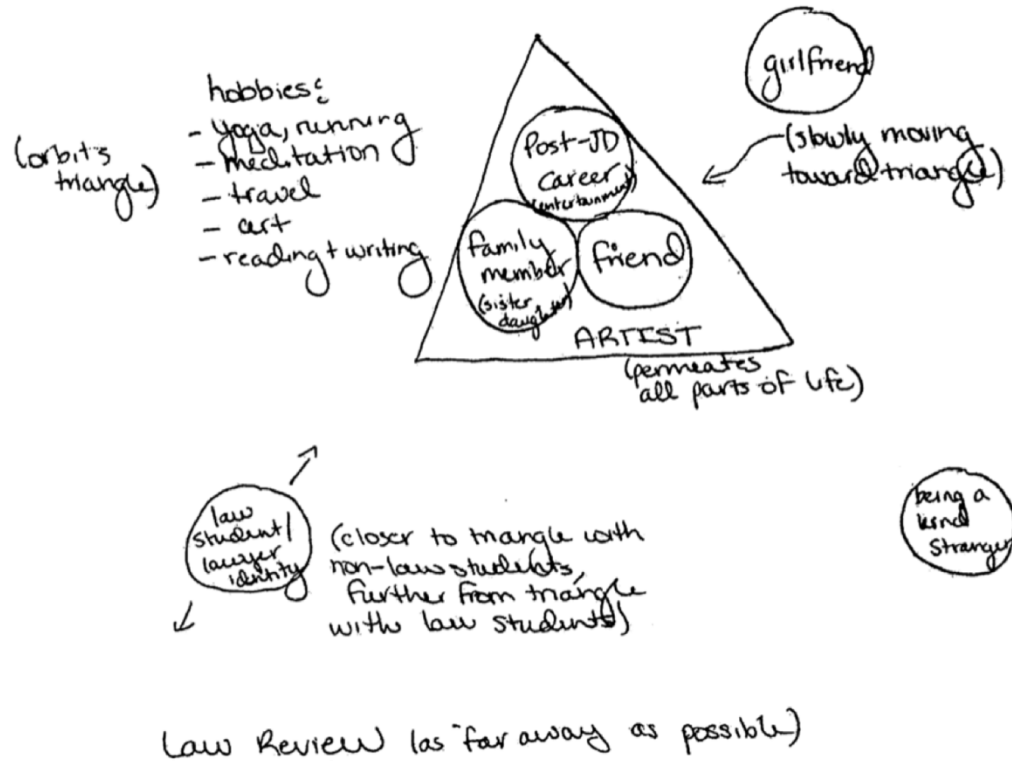 hobbies:
- yoga, running
- meditation
- travel
- art
- reading + writing
(orbits
triangle)
Post-JD
career
(entertainment)
family
member
(sister
daughter)
friend
ARTIST
(permeates
all parts of life)
girlfriend
(slowly moving
toward triangle)
law
student/
lawyer
identity
(closer to triangle with
non-law students,
further from triangle
with law students)
being a
kind
stranger
Law Review (as far away as possible)